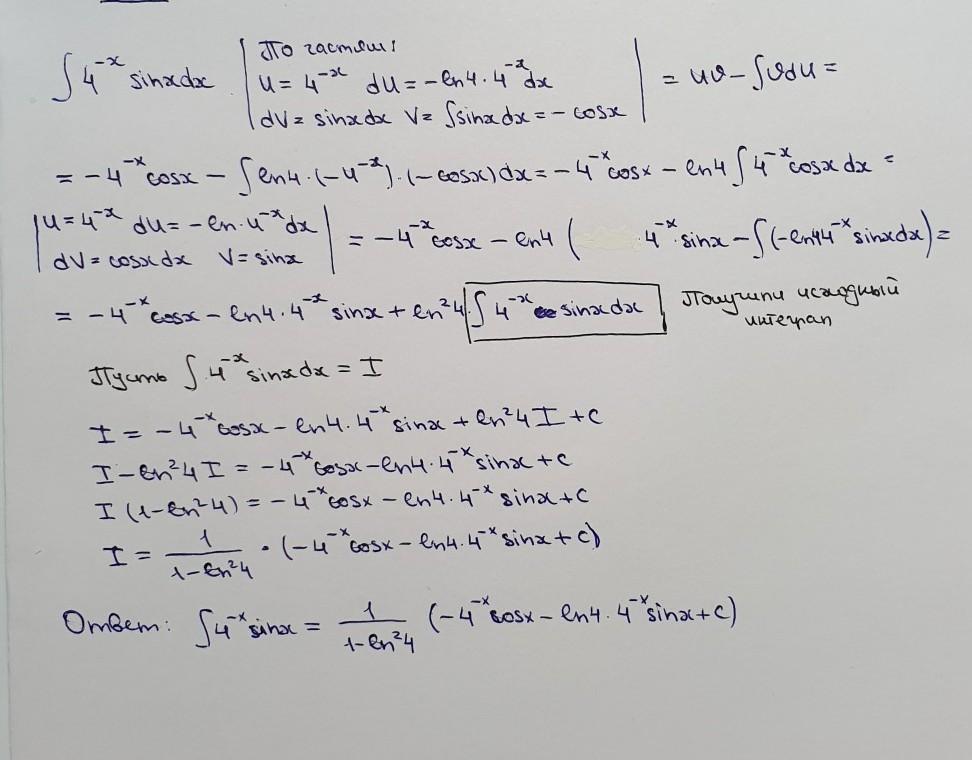 ∫ 4^{-x} sinx dx | По частям:
u = 4^{-x} du = -ln4 · 4^{-x} dx
dV = sinx dx V = ∫sinx dx = - cosx | = uv - ∫vdu =
= -4^{-x} cosx - ∫ ln4 · (-4^{-x}) · (-cosx) dx = -4^{-x} cosx - ln4 ∫ 4^{-x} cosx dx =
| u = 4^{-x} du = -ln · 4^{-x} dx
dV = cosx dx V = sinx | = -4^{-x} cosx - ln4 ( 4^{-x} · sinx - ∫ (-ln4 4^{-x} sinx dx) =
= -4^{-x} cosx - ln4 · 4^{-x} sinx + ln²4 ∫ 4^{-x} sinx dx Получили исходный
интеграл
Пусть ∫ 4^{-x} sinx dx = I
I = -4^{-x} cosx - ln4 · 4^{-x} sinx + ln²4 I + c
I - ln²4 I = -4^{-x} cosx - ln4 · 4^{-x} sinx + c
I (1-ln²4) = -4^{-x} cosx - ln4 · 4^{-x} sinx + c
I = 1/(1-ln²4) · (-4^{-x} cosx - ln4 · 4^{-x} sinx + c)
Ответ: ∫ 4^{-x} sinx = 1/(1-ln²4) (-4^{-x} cosx - ln4 · 4^{-x} sinx + c)